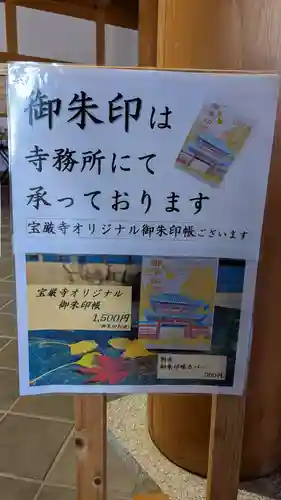 御朱印は
寺務所にて
承っております
宝厳寺オリジナル御朱印帳ございます
宝厳寺オリジナル
御朱印帳
1,500円
御朱印帳